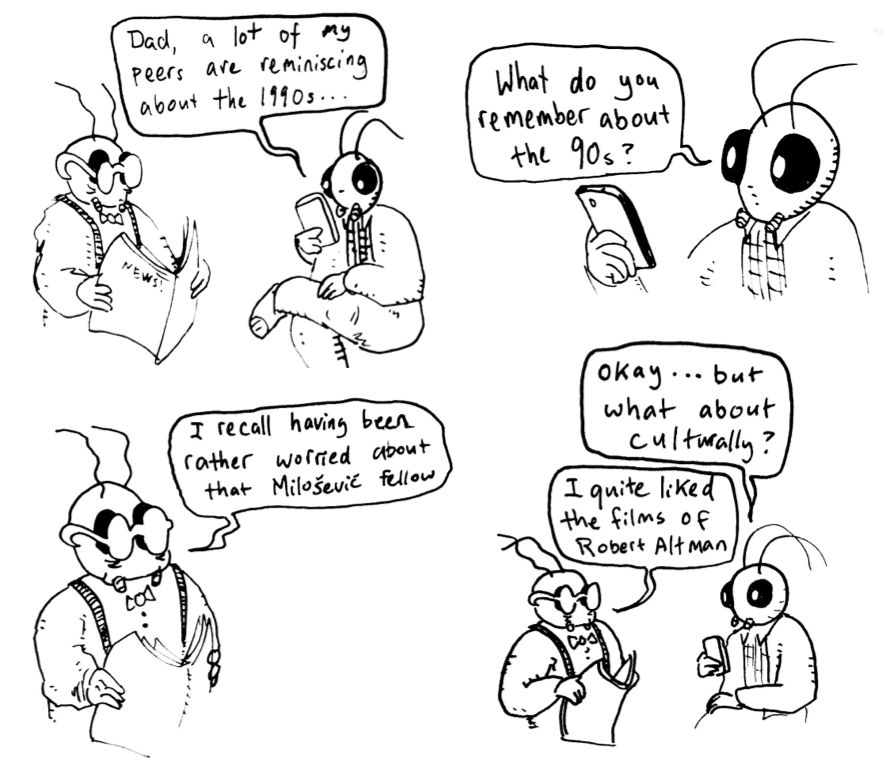 Dad, a lot of my
peers are reminiscing
about the 1990s...
NEWS!
What do you
remember about
the 90s?
I recall having been
rather worried about
that Milošević fellow
Okay... but
what about
culturally?
I quite liked
the films of
Robert Altman